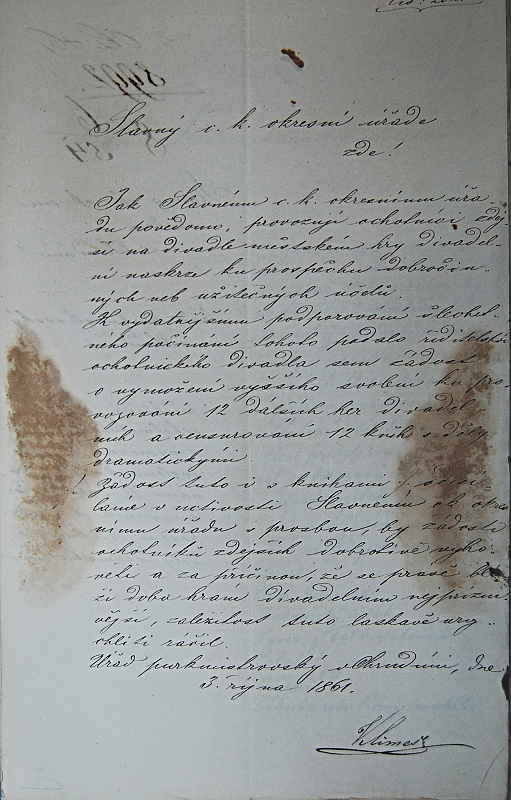 Slavný c. k. okresní úřade
zde!
Jak Slavnému c. k. okresnímu úřa-
du povědomo, provozují ochotníci zdej-
ší na divadle městském hry divadel-
ní naskrze ku prospěchu dobročin-
ných neb užitečných účelů.
K vydatnějšímu podporování šlechet-
ného počínaní tohoto podalo ředitelství
ochotnického divadla sem žádost
o vymožení vyššího svolení ku pro
vozování 12 dalších her divadel-
ních a censurování 12 knih s děly
dramatickými
Žádost tuto i s knihami odesí-
láme v uctivosti Slavnému ck okre
nímu úřadu s prosbou, by žádosti
ochotníků zdejších dobrotivě vyho-
věti a za příčinou, že se právě blí
ží doba hram divadelním nejprízni-
vější, záležitost tuto laskavě ury-
chliti ráčil
Úřad purkmistrovský v Chrudimi, dne
3. října 1861.
Klimesz